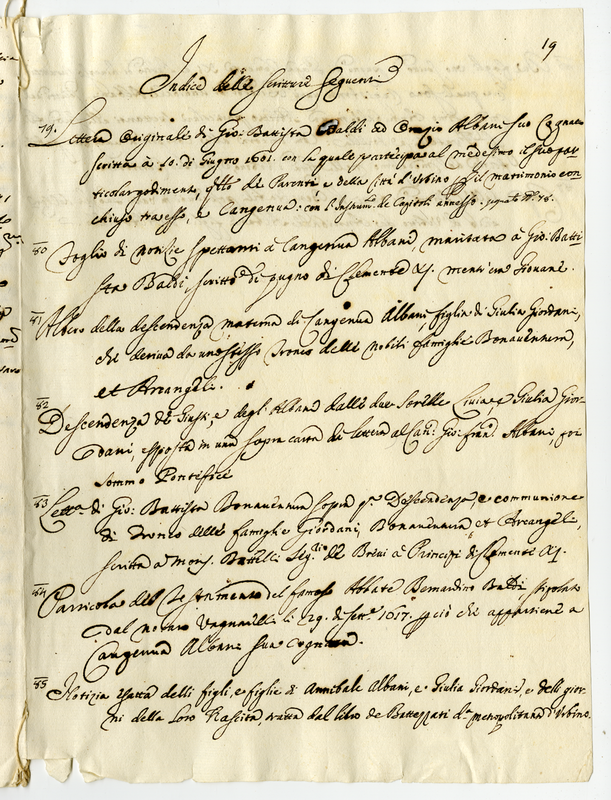 19
Indice delle Scritture Seguenti
79. Lettera originale di Gio: Battista Baldi ad Orazio Albani suo Cognato
scritta à 10. di Giugno 1601. con la quale partecipa al medesimo il suo par-
ticolar godimento, de Parenti, e della Città d'Urbino p il matrimonio con-
chiuso tra esso, e Langenua: con l'Instrum.to de Capitoli annesso.
80 Foglio di notizie spettanti à Langenua Albani, maritata à Gio: Batti
sta Baldi, scritto di pugno di Clemente XI. mentr'era Giovane.
81 Albero della descendenza materna di Langenua Albani figlia di Giulia Giordani,
che deriva da uno stesso Tronco delle nobili famiglie Bonaventura,
et Arcangeli.
82 Descendenza de Giusti, e degl'Albani dalle due Sorelle Livia, e Giulia Gior-
dani, esposta in una sopra carta di lettera al Gio: Fran.o Albani, poi
Sommo Pontefice
83 Lett.a di Gio: Battista Bonaventura sopra Descendenza, e communione
di Tronco delle famiglie Giordani, Bonaventura et Arcangeli,
scritta a Mons. Battelli Seg.rio de Brevi à Principi di Clemente XI.
84 Particola del Testamento del famoso Abbate Bernardino Baldi, stipolato
dal notaro li 29. di Sett.e 1617. p ciò che appartiene a
Langenua Albani sua Cognata.
85 Notizia esatta delli figli, e figlie di Annibale Albani, e Giulia Giordani, e delli gior-
ni della loro Nascita, tratta dal libro de Battezzati d.a metropolitana d'Urbino.